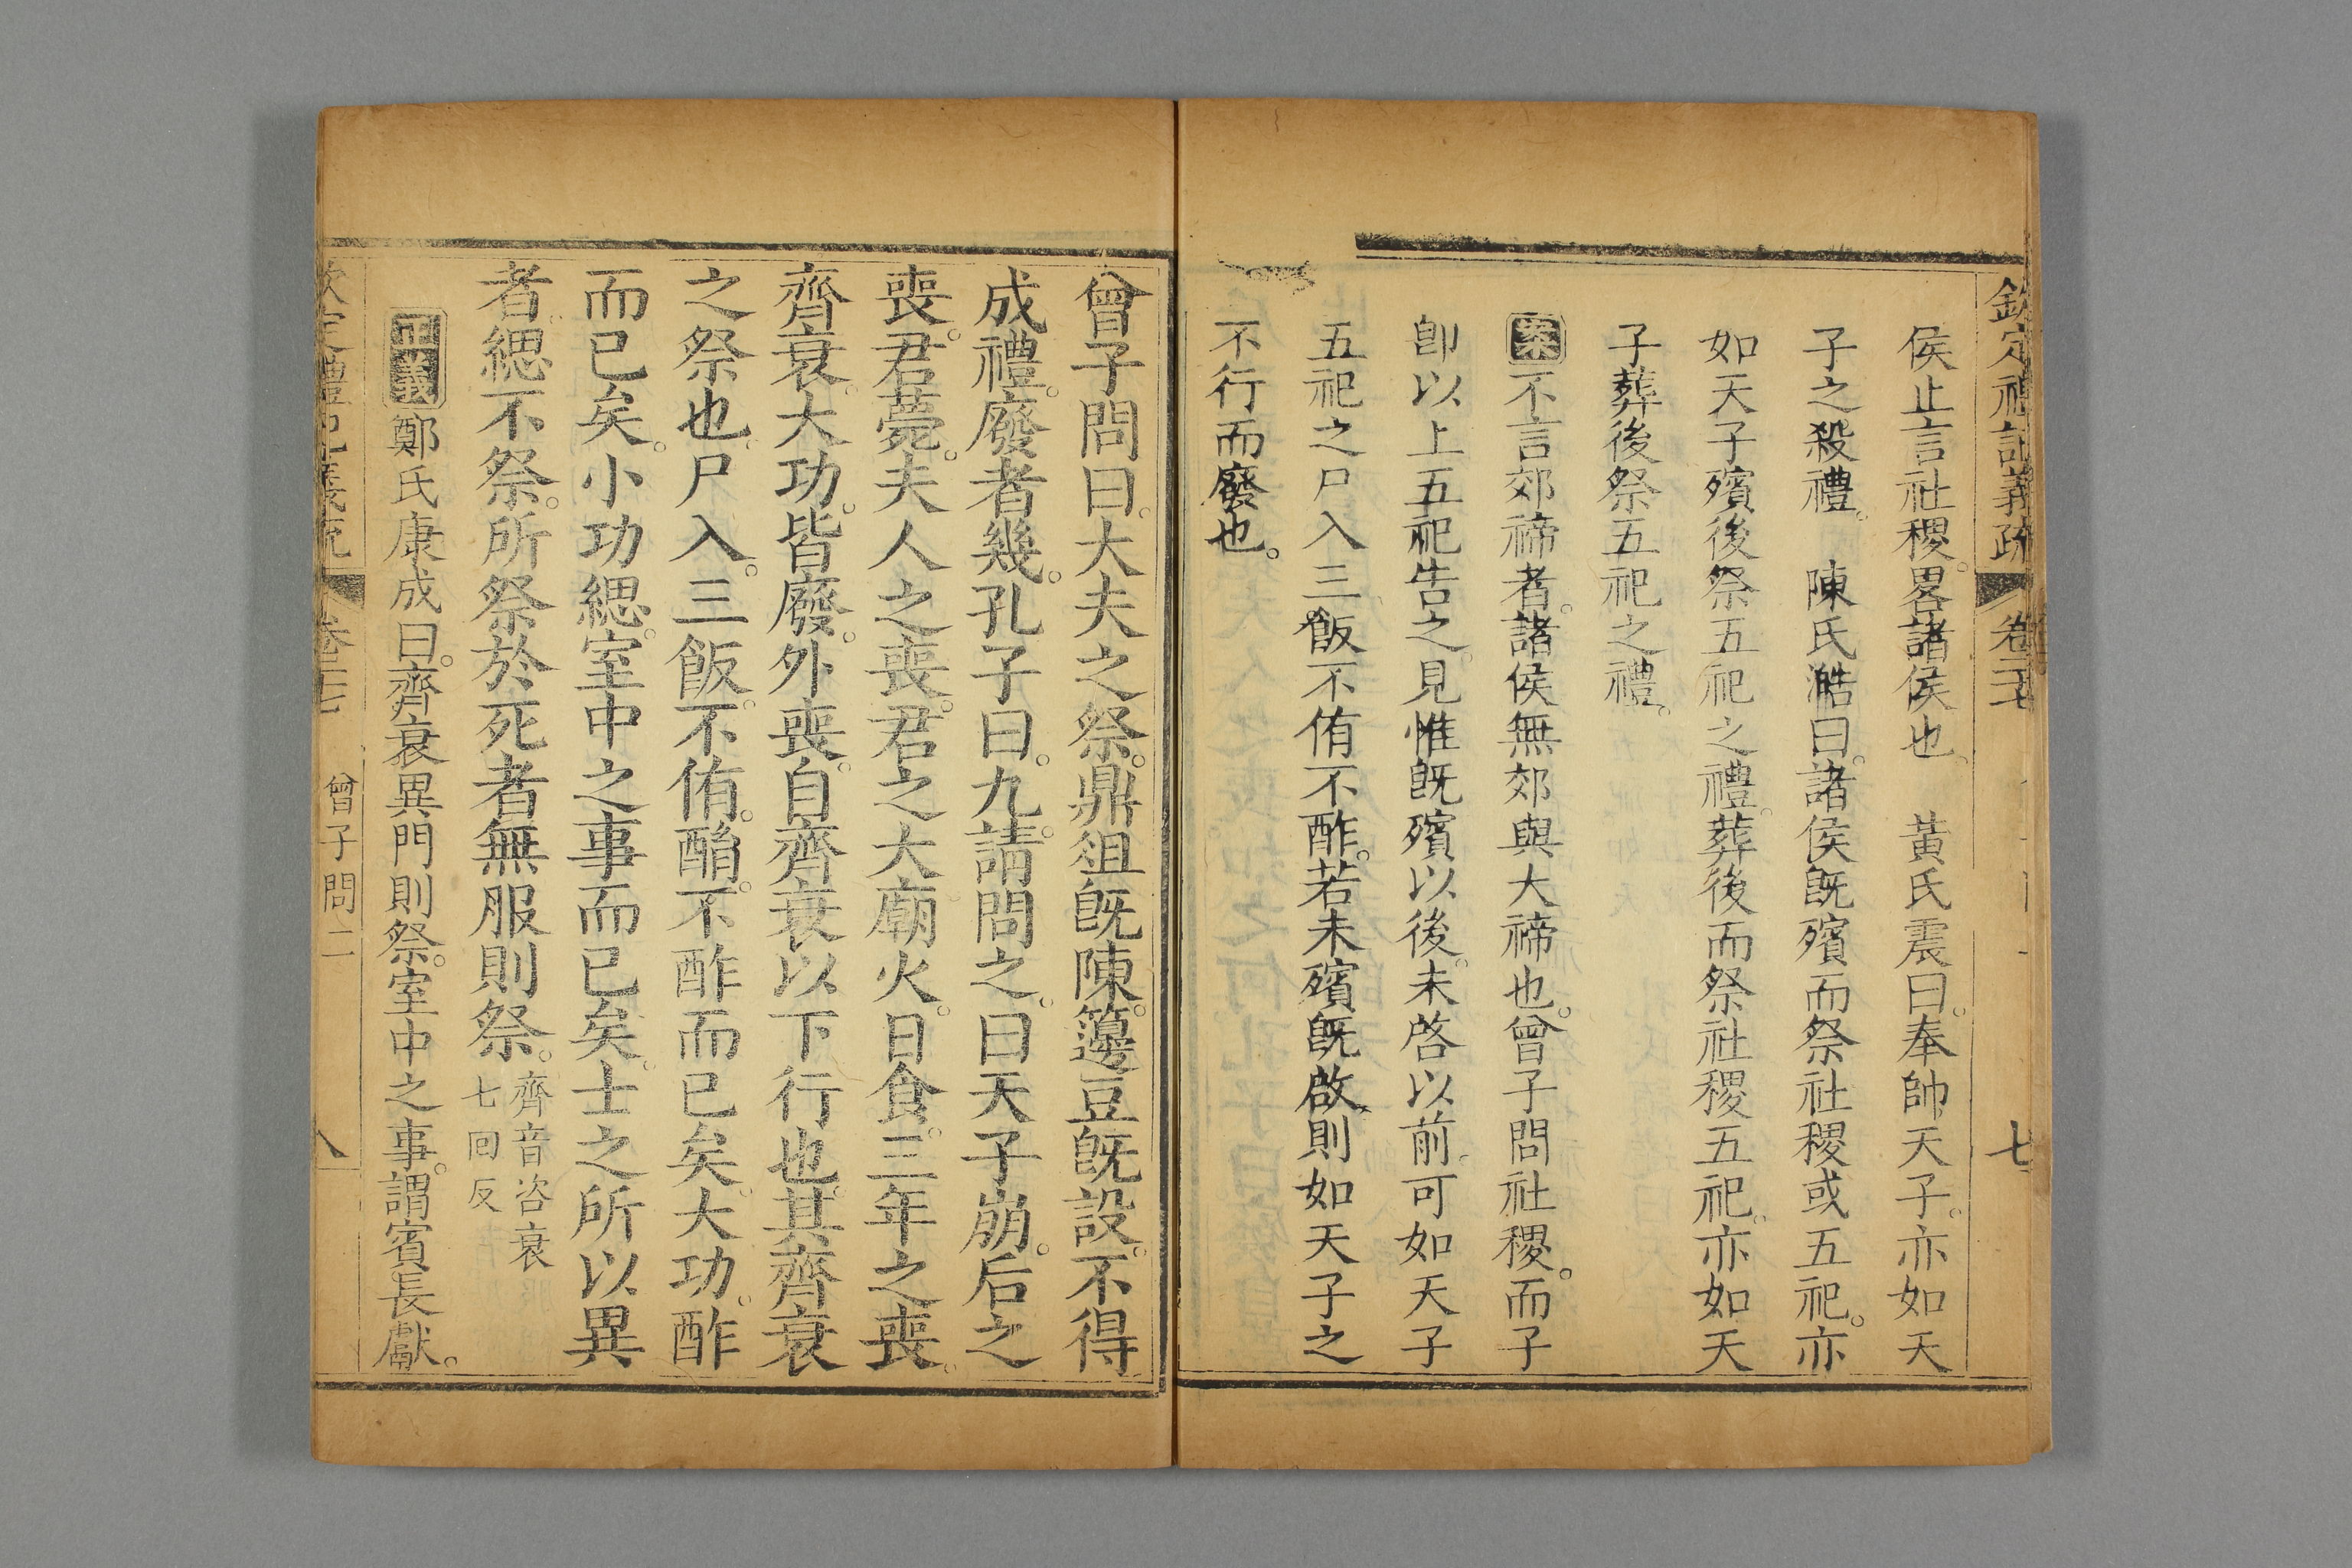 欽定禮記義疏 卷二十七 七
侯止言社稷。畧諸侯也。 黃氏震曰。奉帥天子。亦如天
子之殺禮。 陳氏澔曰。諸侯旣殯而祭社稷或五祀。亦
如天子殯後祭五祀之禮。葬後而祭社稷五祀。亦如天
子葬後祭五祀之禮。
案不言郊禘者。諸侯無郊與大禘也。曾子問社稷。而子
卽以上五祀告之。見惟旣殯以後。未啓以前。可如天子
五祀之尸入三飯不侑不酢。若未殯旣啟。則如天子之
不行而廢也。
曾子問曰。大夫之祭。鼎俎旣陳。籩豆旣設。不得
成禮。廢者幾。孔子曰。九。請問之。曰天子崩。后之
喪。君薨。夫人之喪。君之大廟火。日食。三年之喪。
齊衰。大功。皆廢。外喪。自齊衰以下行也。其齊衰
之祭也。尸入。三飯。不侑。酳。不酢而已矣。大功。酢
而已矣。小功緦。室中之事而已矣。士之所以異
者。緦不祭。所祭於死者無服則祭。齊音咨衰
七回反
正義鄭氏康成曰。齊衰異門則祭。室中之事。謂賓長獻。
欽定禮記義疏 卷二十七 曾子問二 八